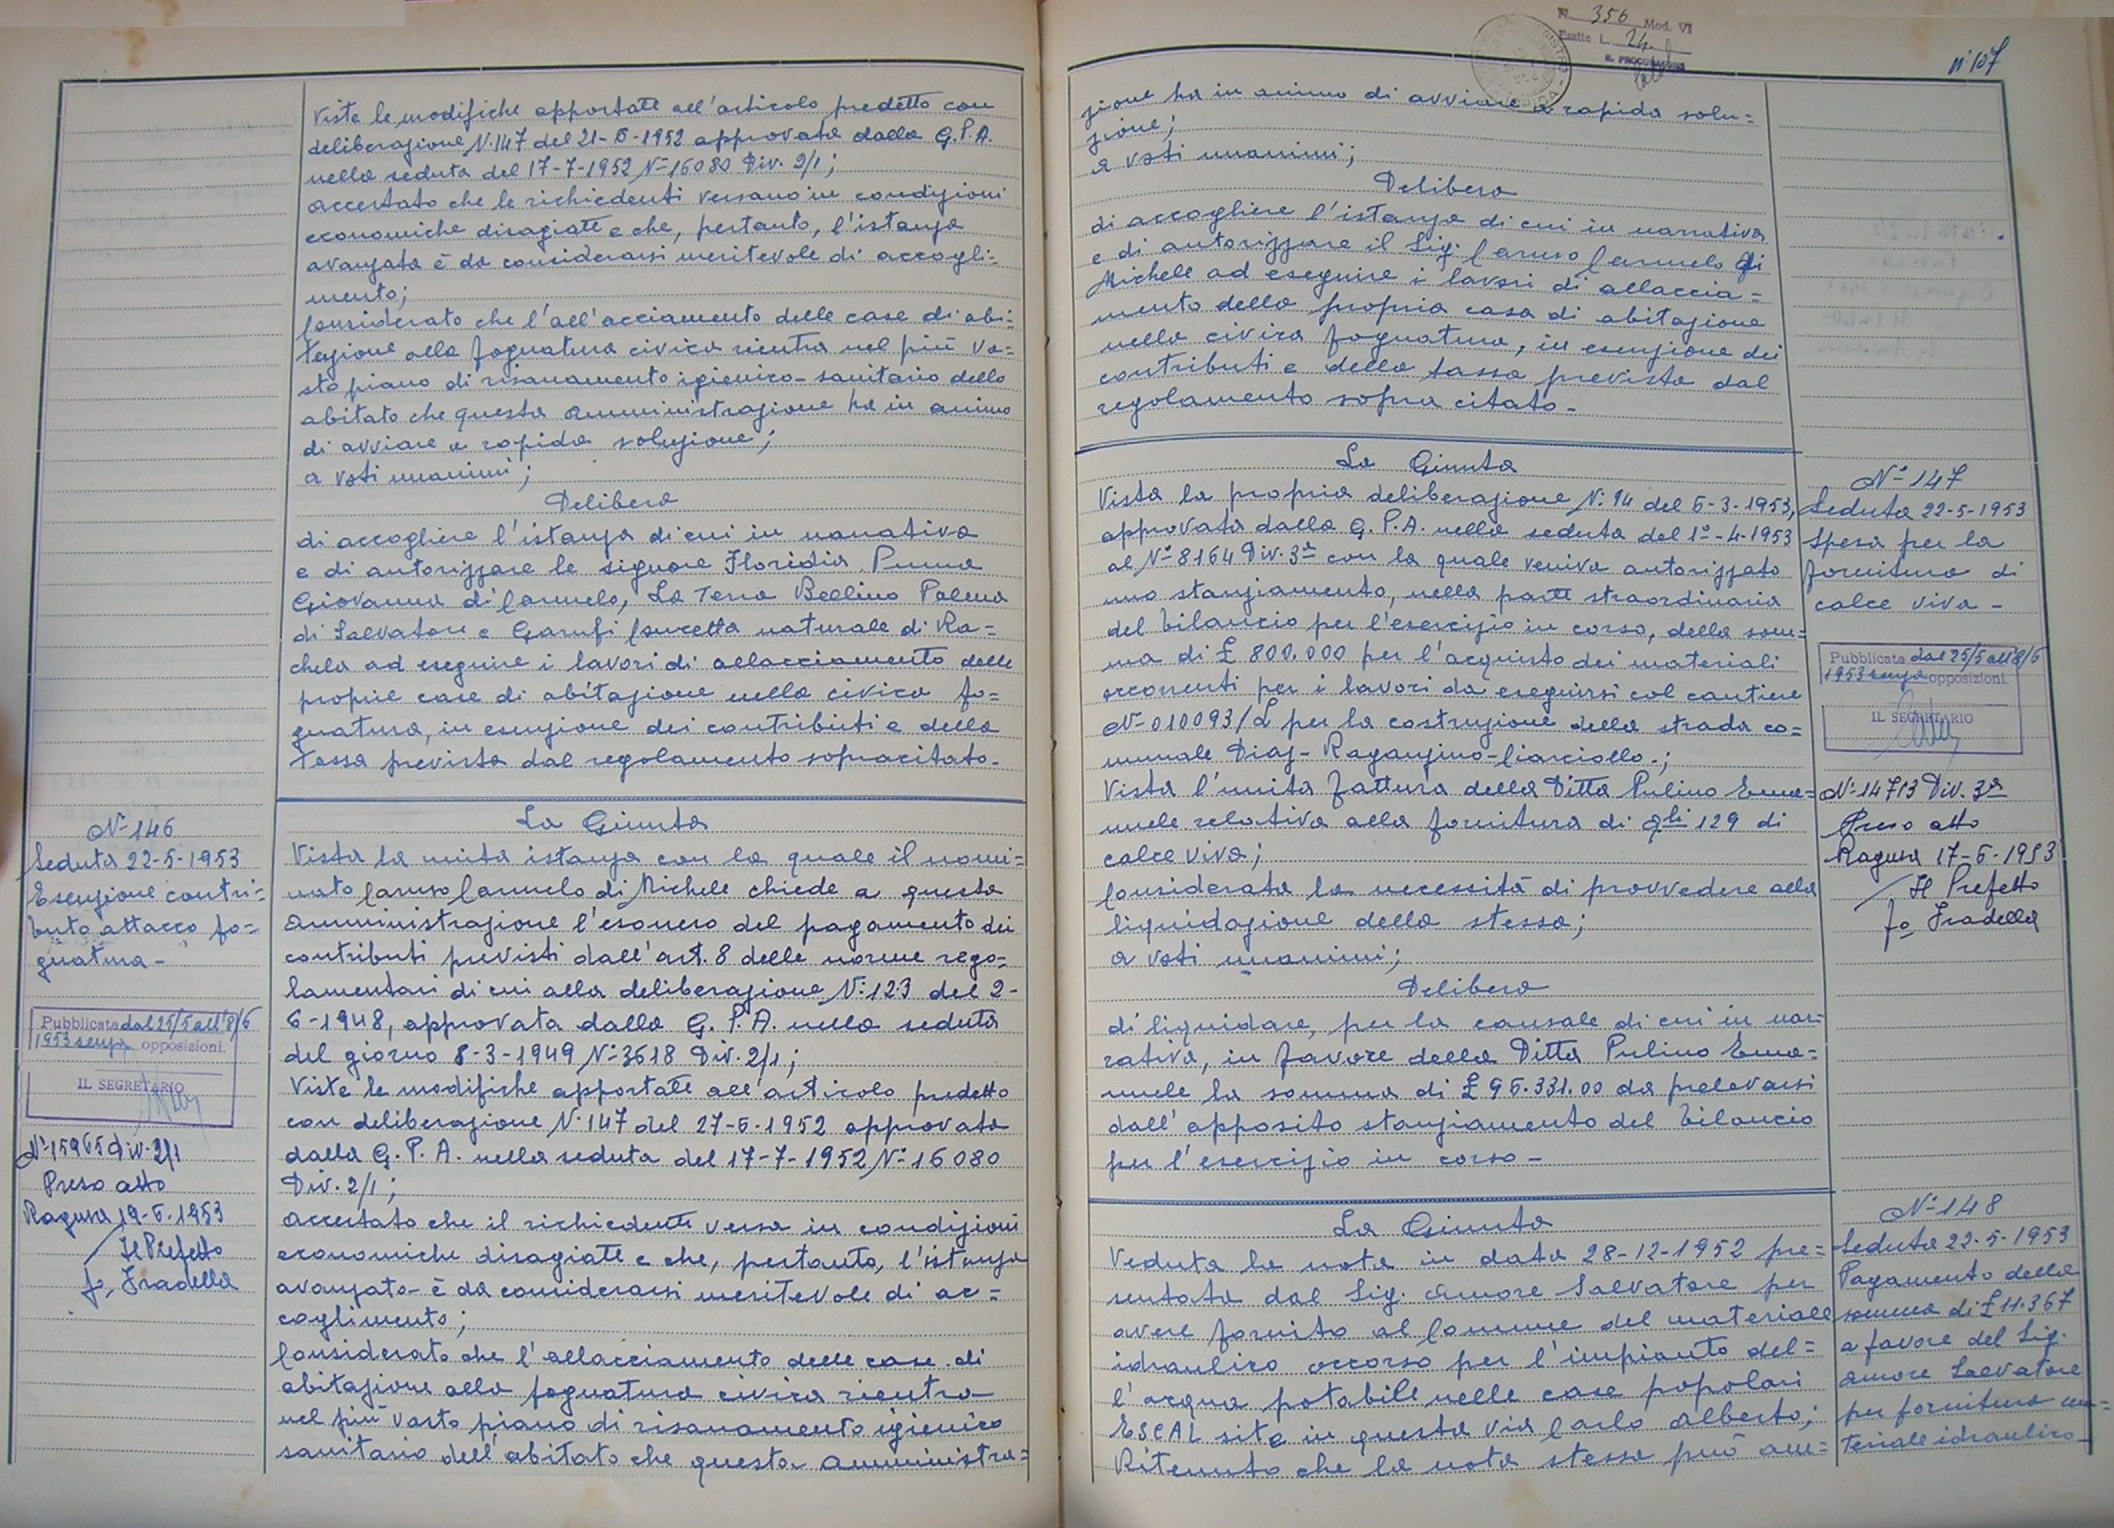 Viste le modifiche apportate all'articolo predetto con
deliberazione N. 147 del 21-6-1952 approvata dalla G.P.A.
nella seduta del 17-7-1952 N° 16080 Div. 2/1;
accertato che le richiedenti versano in condizioni
economiche disagiate e che, pertanto, l'istanza
avanzata è da considerarsi meritevole di accogli=
mento;
Considerato che l'all'acciamento delle case di abi=
tazione alla fognatura civica rientra nel più va=
sto piano di risanamento igienico-sanitario dello
abitato che questa Amministrazione ha in animo
di avviare a rapida soluzione;
a voti unanimi;
Delibera
di accogliere l'istanza di cui in narrativa
e di autorizzare le signore Floridia Puma
Giovanna di Carmelo, La Terra Bellino Palma
di Salvatore e Garufi Concetta naturale di Ra=
chela ad eseguire i lavori di allacciamento delle
proprie case di abitazione nella civica fo=
gnatura, in esenzione dei contributi e della
tassa prevista dal regolamento sopracitato.
N° 146
Seduta 22-5-1953
Esenzione contri=
buto attacco fo=
gnatura -
Pubblicata dal 25/5 all'8/6
1953 senza opposizioni.
IL SEGRETARIO
N° 15965 Div. 2/1
Preso atto
Ragusa 19-6-1953
Il Prefetto
fo Fradella
La Giunta
Vista la unita istanza con la quale il nomi=
nato Caruso Carmelo di Michele chiede a questa
Amministrazione l'esonero del pagamento dei
contributi previsti dall'art. 8 delle norme rego=
lamentari di cui alla deliberazione N° 123 del 2-
6-1948, approvata dalla G. P. A. nella seduta
del giorno 8-3-1949 N° 3618 Div. 2/1;
Viste le modifiche apportate all'articolo predetto
con deliberazione N° 147 del 27-6-1952 approvata
dalla G. P. A. nella seduta del 17-7-1952 N° 16080
Div. 2/1;
accertato che il richiedente versa in condizioni
economiche disagiate e che, pertanto, l'istanza
avanzata è da considerarsi meritevole di ac=
coglimento;
Considerato che l'allacciamento delle case di
abitazione alla fognatura civica rientra
nel più vasto piano di risanamento igienico
sanitario dell'abitato che questa Amministra=
N. 356 Mod. VI
Esatte L. 24.
IL PROCURATORE
n° 107
zione ha in animo di avviare a rapida solu=
zione;
a voti unanimi;
Delibera
di accogliere l'istanza di cui in narrativa
e di autorizzare il Sig. Caruso Carmelo di
Michele ad eseguire i lavori di allaccia=
mento della propria casa di abitazione
nella civica fognatura, in esenzione dei
contributi e della tassa prevista dal
regolamento sopra citato -
La Giunta
Vista la propria deliberazione N. 94 del 6-3-1953,
approvata dalla G. P. A. nella seduta del 1°-4-1953
al N° 8164 Div. 3ª con la quale veniva autorizzato
uno stanziamento, nella parte straordinaria
del bilancio per l'esercizio in corso, della som=
ma di £ 800.000 per l'acquisto dei materiali
occorrenti per i lavori da eseguirsi col cantiere
N° 010093/L per la costruzione della strada co=
munale Diaz- Raganzino-Ciarciolo.;
Vista l'unita fattura della Ditta Pulino Ema=
nuele relativa alla fornitura di q.li 129 di
calce viva;
Considerata la necessità di provvedere alla
liquidazione della stessa;
a voti unanimi;
Delibera
di liquidare, per la causale di cui in nar=
rativa, in favore della Ditta Pulino Ema=
nuele la somma di £ 96.331.00 da prelevarsi
dall'apposito stanziamento del bilancio
per l'esercizio in corso -
N° 147
Seduta 22-5-1953
Spesa per la
fornitura di
calce viva -
Pubblicata dal 25/5 all'8/6
1953 senza opposizioni.
IL SEGRETARIO
N° 14713 Div. 3ª
Preso atto
Ragusa 17-6-1953
Il Prefetto
fo Fradella
La Giunta
Veduta la nota in data 28-12-1952 pre=
sentata dal Sig. Amore Salvatore per
avere fornito al Comune del materiale
idraulico occorso per l'impianto del=
l'acqua potabile nelle case popolari
ESCAL site in questa via Carlo Alberto;
Ritenuto che la nota stessa può am=
N° 148
Seduta 22-5-1953
Pagamento della
somma di £ 11.367
a favore del Sig.
Amore Salvatore
per fornitura ma=
teriale idraulico